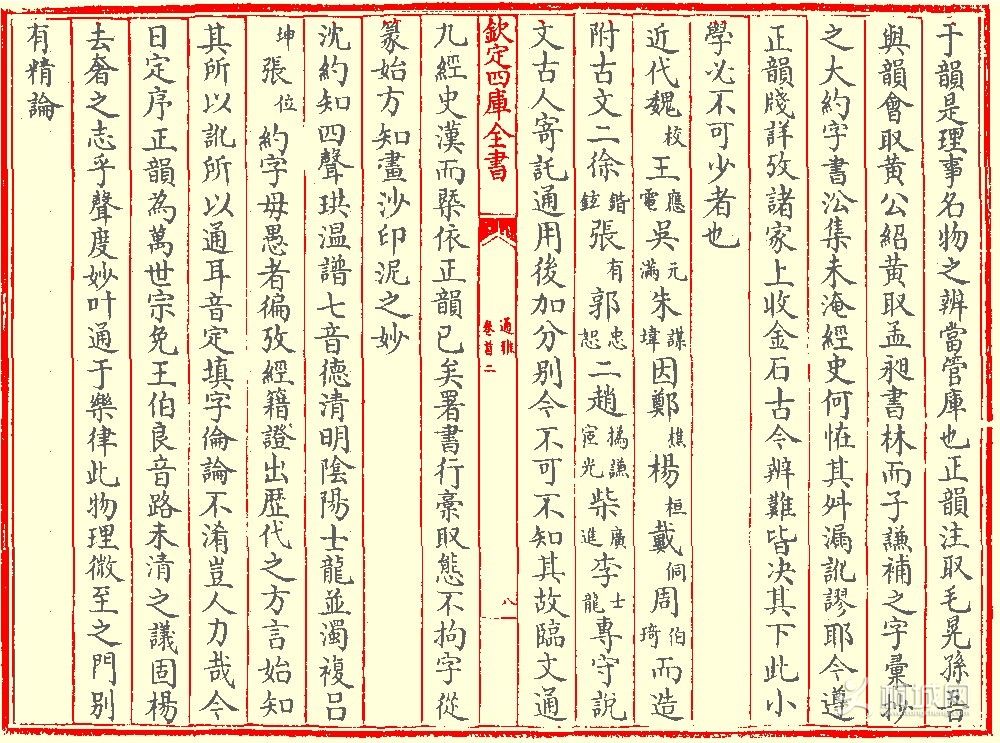 于韻是理事名物之辨當管庫也正韻注取毛晃孫吾
與韻會取黃公紹黃取孟昶書林而子謙補之字彙抄
之大約字書沿集未淹經史何怪其舛漏訛謬耶今遵
正韻牋詳攷諸家上收金石古今辨難皆决其下此小
學必不可少者也
近代魏校王應電吳元滿朱謀㙔因鄭樵楊桓戴侗周伯琦而造
附古文二徐鍇鉉張有郭忠恕二趙撝謙宧光柴廣進李士龍專守説
文古人寄託通用後加分别今不可不知其故臨文通
欽定四庫全書
通雅
卷首二
八
九經史漢而槩依正韻已矣署書行藁取態不拘字從
篆始方知畫沙印泥之妙
沈約知四聲珙温譜七音德清明陰陽士龍並濁複吕
坤張位約字母愚者徧攷經籍證出歴代之方言始知
其所以訛所以通耳音定填字倫論不淆豈人力哉今
日定序正韻為萬世宗免王伯良音路未清之議固楊
去奢之志乎聲度妙叶通于樂律此物理微至之門别
有精論